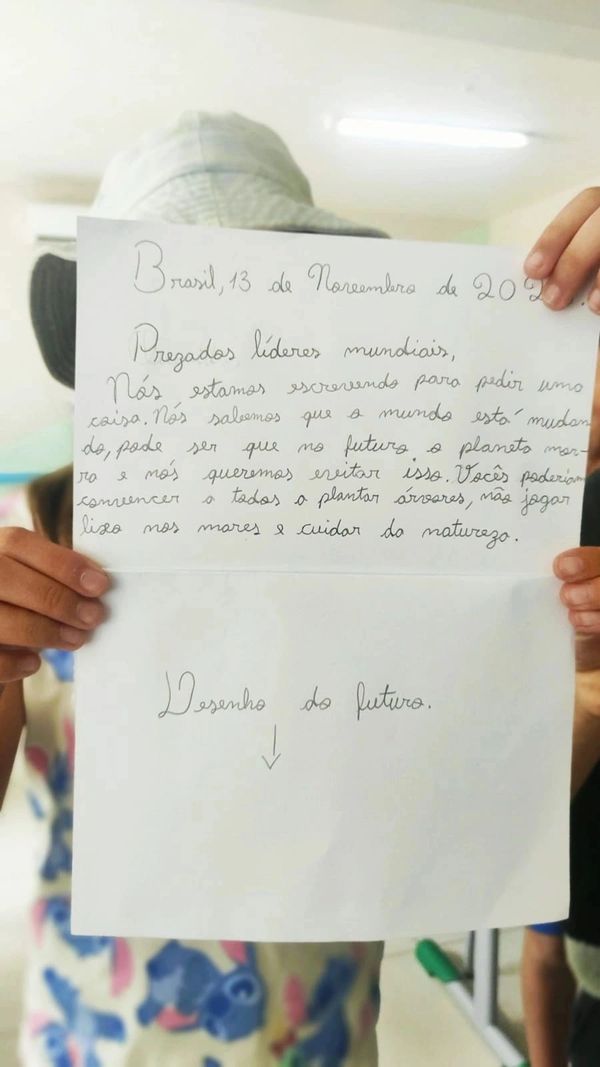 Brasil, 13 de Novembro de 202
Prezados líderes mundiais,
Nós estamos escrevendo para pedir uma
coisa. Nós sabemos que o mundo está mudan
do, pode ser que no futuro o planeta mor-
ra e nós queremos evitar isso. Vocês poderiam
convencer a todos a plantar árvores, não jogar
lixo nos mares e cuidar da natureza.
Desenho do futuro.